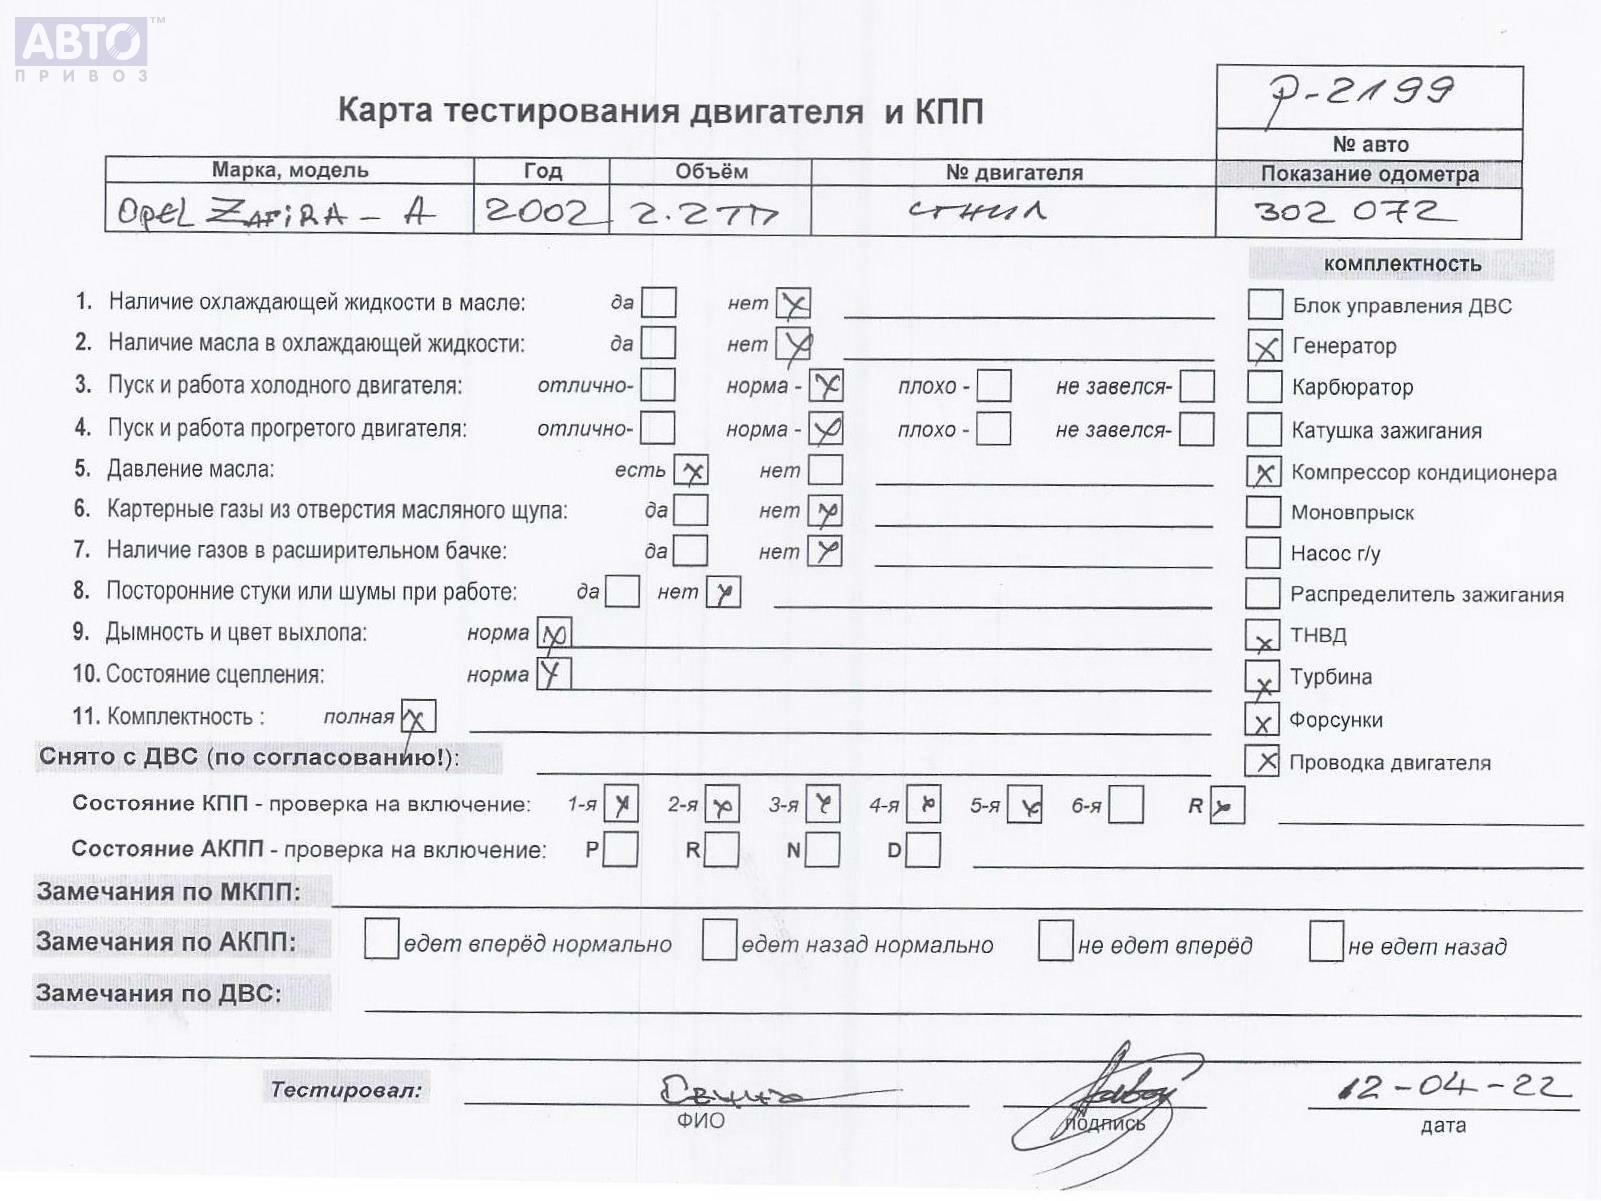 АВТО™
ПРИВОЗ
Р-2199
Карта тестирования двигателя и КПП
№ авто
Марка, модель Год Объём № двигателя Показание одометра
OPEL ZAFIRA - A 2002 2.2ТД сгнил 302 072
комплектность
1. Наличие охлаждающей жидкости в масле: да нет Блок управления ДВС
2. Наличие масла в охлаждающей жидкости: да нет Генератор
3. Пуск и работа холодного двигателя: отлично- норма - плохо - не завелся- Карбюратор
4. Пуск и работа прогретого двигателя: отлично- норма - плохо - не завелся- Катушка зажигания
5. Давление масла: есть нет Компрессор кондиционера
6. Картерные газы из отверстия масляного щупа: да нет Моновпрыск
7. Наличие газов в расширительном бачке: да нет Насос г/у
8. Посторонние стуки или шумы при работе: да нет Распределитель зажигания
9. Дымность и цвет выхлопа: норма ТНВД
10. Состояние сцепления: норма Турбина
11. Комплектность : полная Форсунки
Снято с ДВС (по согласованию!): Проводка двигателя
Состояние КПП - проверка на включение: 1-я 2-я 3-я 4-я 5-я 6-я R
Состояние АКПП - проверка на включение: P R N D
Замечания по МКПП:
Замечания по АКПП: едет вперёд нормально едет назад нормально не едет вперёд не едет назад
Замечания по ДВС:
Тестировал: 12-04-22
ФИО подпись дата